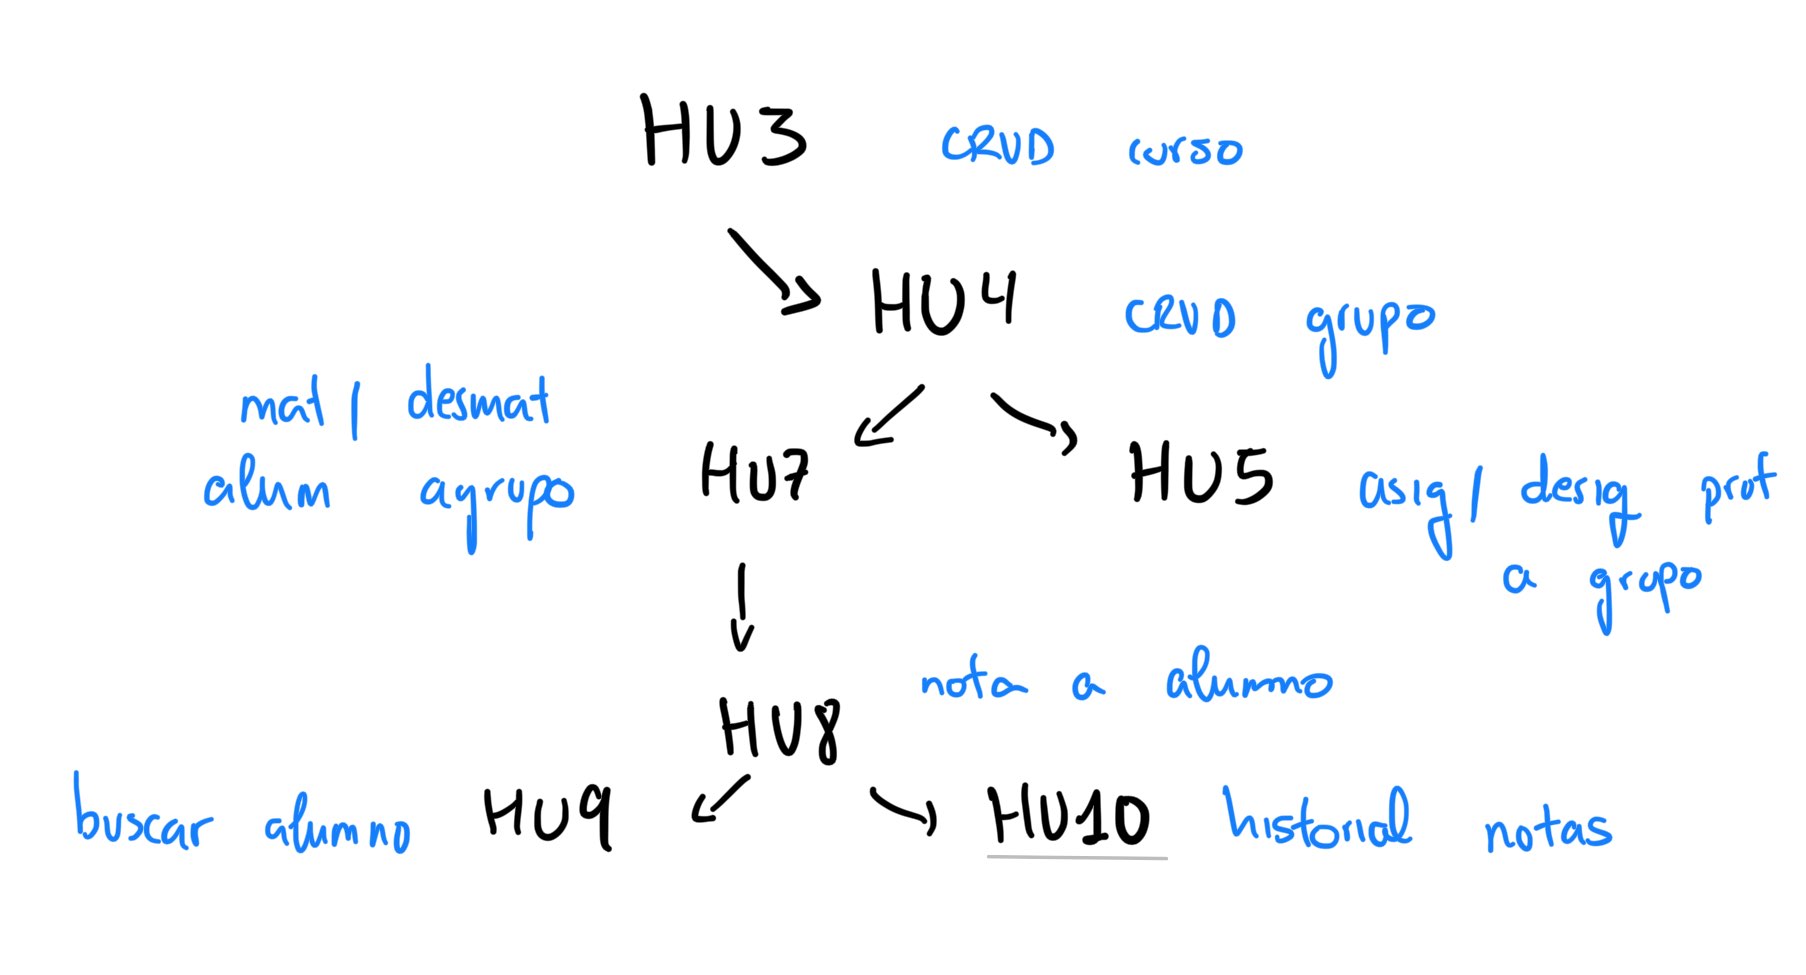 HU3 CRUD curso
HU4 CRUD grupo
mat / desmat
alum agrupo
HU7
HU5
asig / desig prof
a grupo
nota a alumno
HU8
buscar alumno HU9
HU10 historial notas